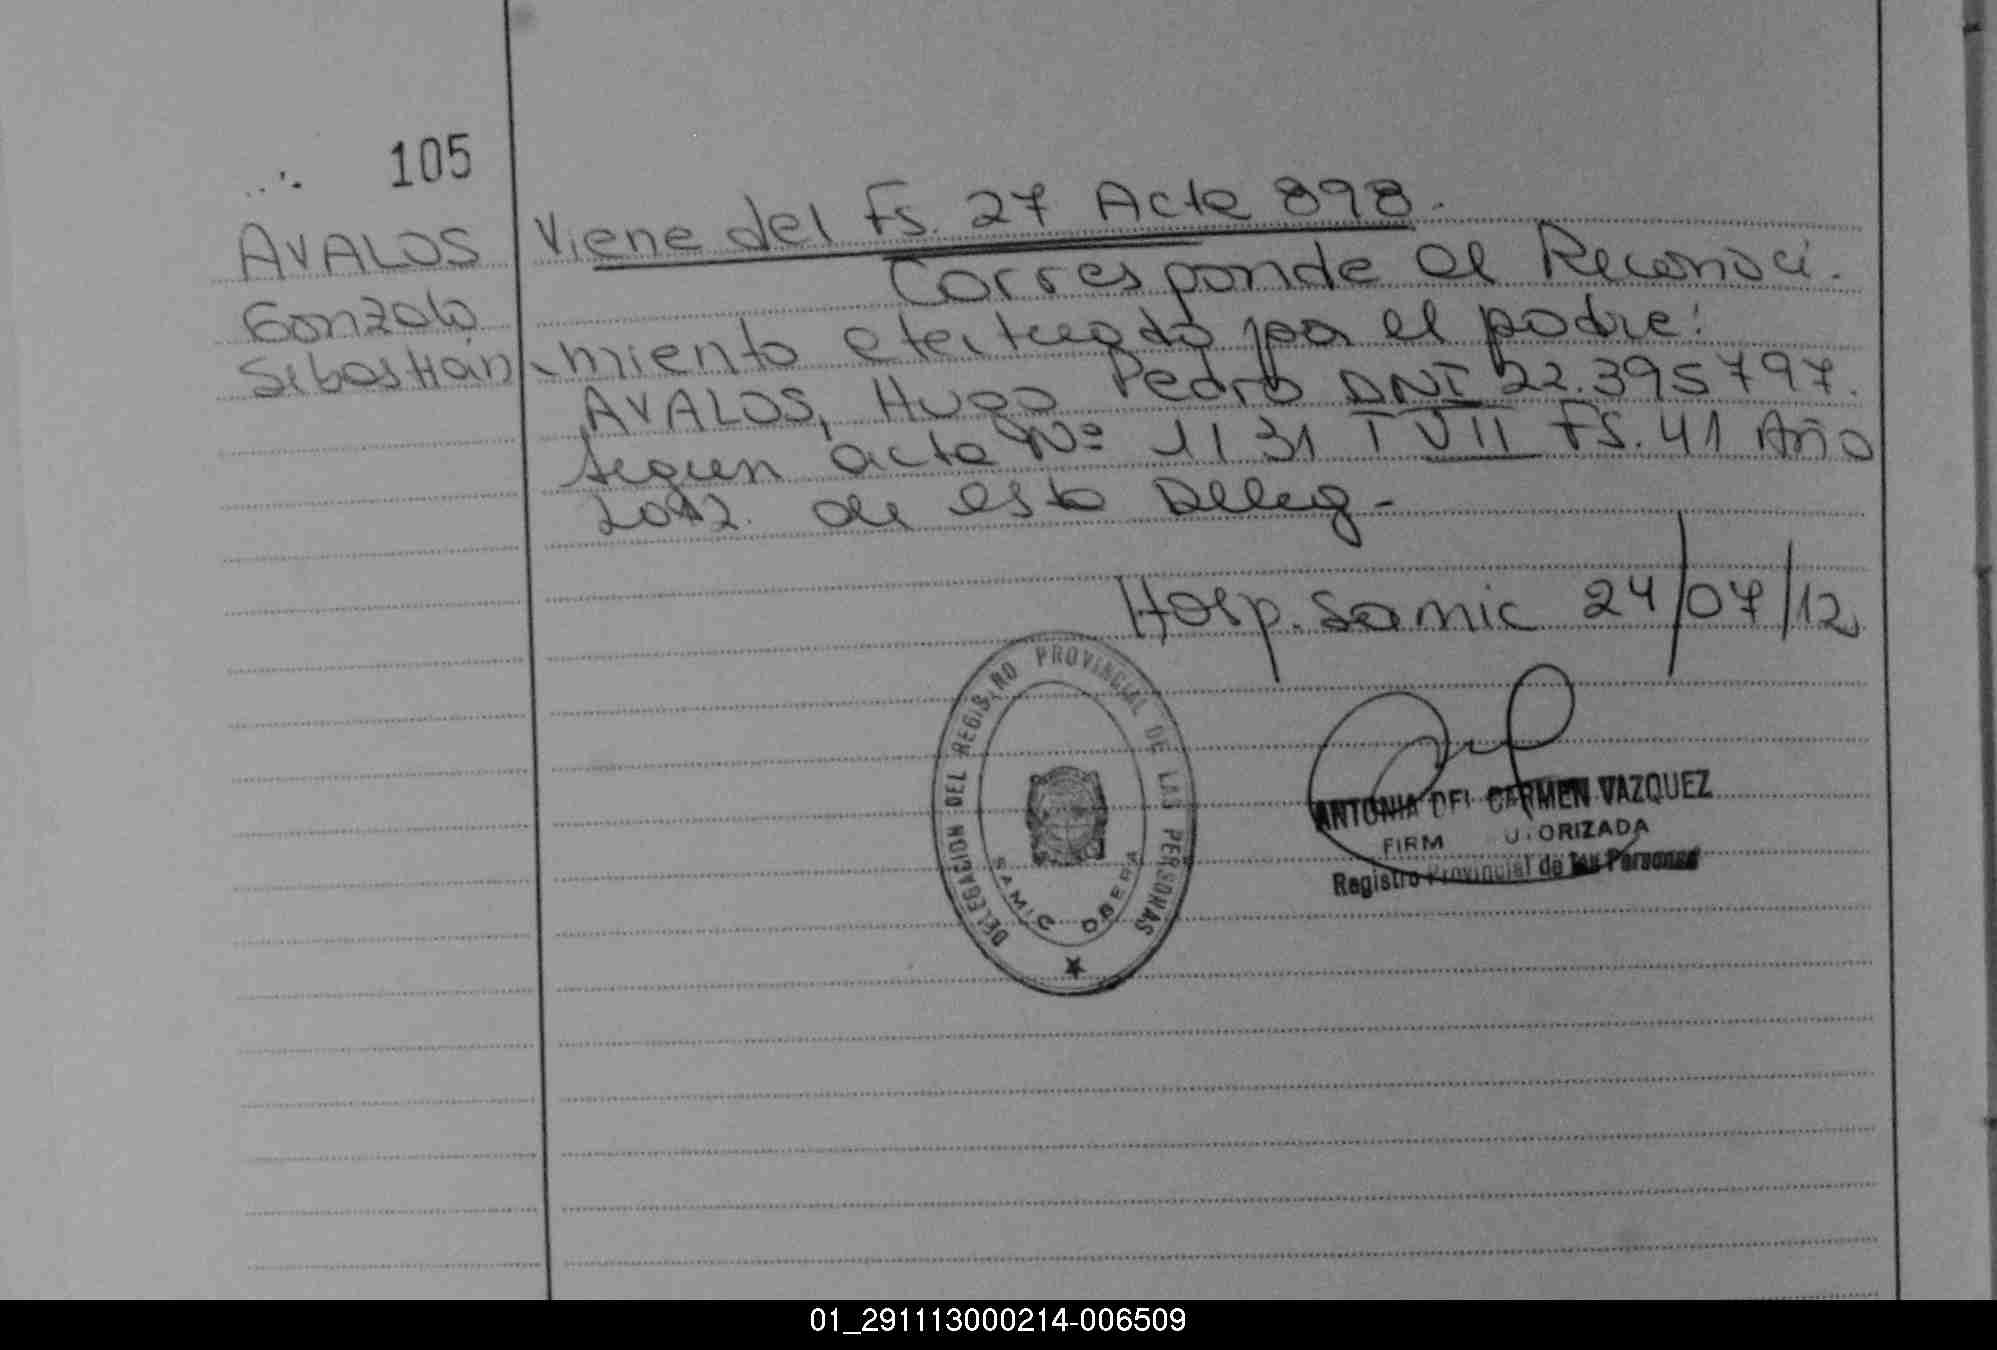 105
AVALOS
Gonzalo
Sebastián
Viene del Fs. 27 Acta 898.
Corresponde al Reconoci.
miento efectuado por el padre:
AVALOS, Hugo Pedro DNI 22.395797.
segun acta Nº 1131 T VII FS. 41 Año
2012. de esta Deleg-
Hosp. Samic 24/07/12
DELEGACION DEL REGISTRO PROVINCIAL DE LAS PERSONAS
SAMIC OBERA
ANTONIA DEL CARMEN VAZQUEZ
FIRM U.ORIZADA
Registro Provincial de las Personas
01_291113000214-006509